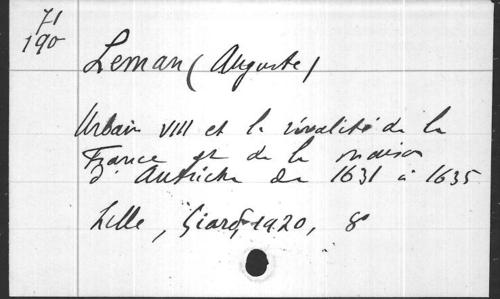 71
190
Leman (Auguste)
Urbain VIII et la rivalité de la
France et de la maison
d'Autriche de 1631 à 1635
Lille, Giard, 1920, 8º